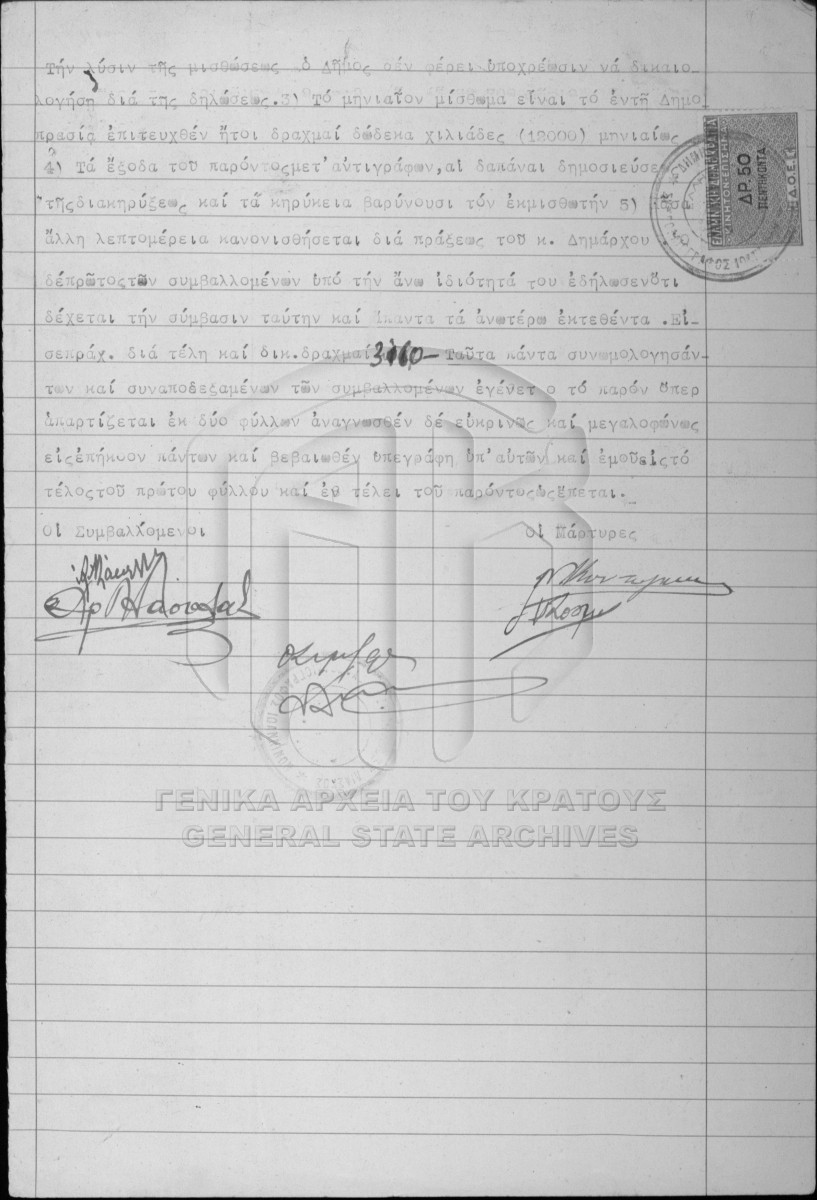 Τήν λύσιν τῆς μισθώσεως ὁ Δῆμος δέν φέρει ὑποχρέωσιν νά δικαιο-
λογήσῃ διά της δηλώσεως.3) Τό μηνιαῖον μίσθωμα εἶναι τό ἐντῇ Δημο
πρασίᾳ ἐπιτευχθέν ἤτοι δραχμαί δώδεκα χιλιάδες (12000) μηνιαίως
4) Τά ἔξοδα του παρόντοςμετ'αὐτιγράφων,αἱ δαπάναι δημοσιεύσε
τῆςδιακηρύξεως καί τά κηρύκεια βαρύνουσι τόν ἐκμισθωτήν 5)
ἄλλη λεπτομέρεια κανονισθήσεται διά πράξεως τοῦ κ. Δημάρχου
δέπρῶτοςτῶν συμβαλλομένων ὑπό τήν ἄνω ἰδιότητά του ἐδήλωσενὅτι
δέχεται τήν σύμβασιν ταύτην καί ἅπαντα τά ἀνωτέρω ἐκτεθέντα .Εἰ-
σεπράχ. διά τέλη καί δικ.δραχμαί 3160- Ταῦτα πάντα συνωμολογησάν-
των καί συναποδεξαμένων τῶν συμβαλλομένων ἐγένετ ο τό παρόν ὅπερ
ἀπαρτίζεται ἐκ δύο φύλλων ἀναγνωσθέν δέ εὐκρινῶς καί μεγαλοφώνως
εἰςἐπήκοον πάντων καί βεβαιωθέν ὑπεγράφη ὑπ'αὐτῶν καί ἐμοῦεἰςτό
τέλοςτοῦ πρώτου φύλλου καί ἐν τέλει τοῦ παρόντοςὡςἕπεται.
Οἱ Συμβαλλόμενοι Οἱ Μάρτυρες
ΔΡ.50
ΠΕΝΗΝΤΑ
ΓΕΝΙΚΑ ΑΡΧΕΙΑ ΤΟΥ ΚΡΑΤΟΥΣ
GENERAL STATE ARCHIVES